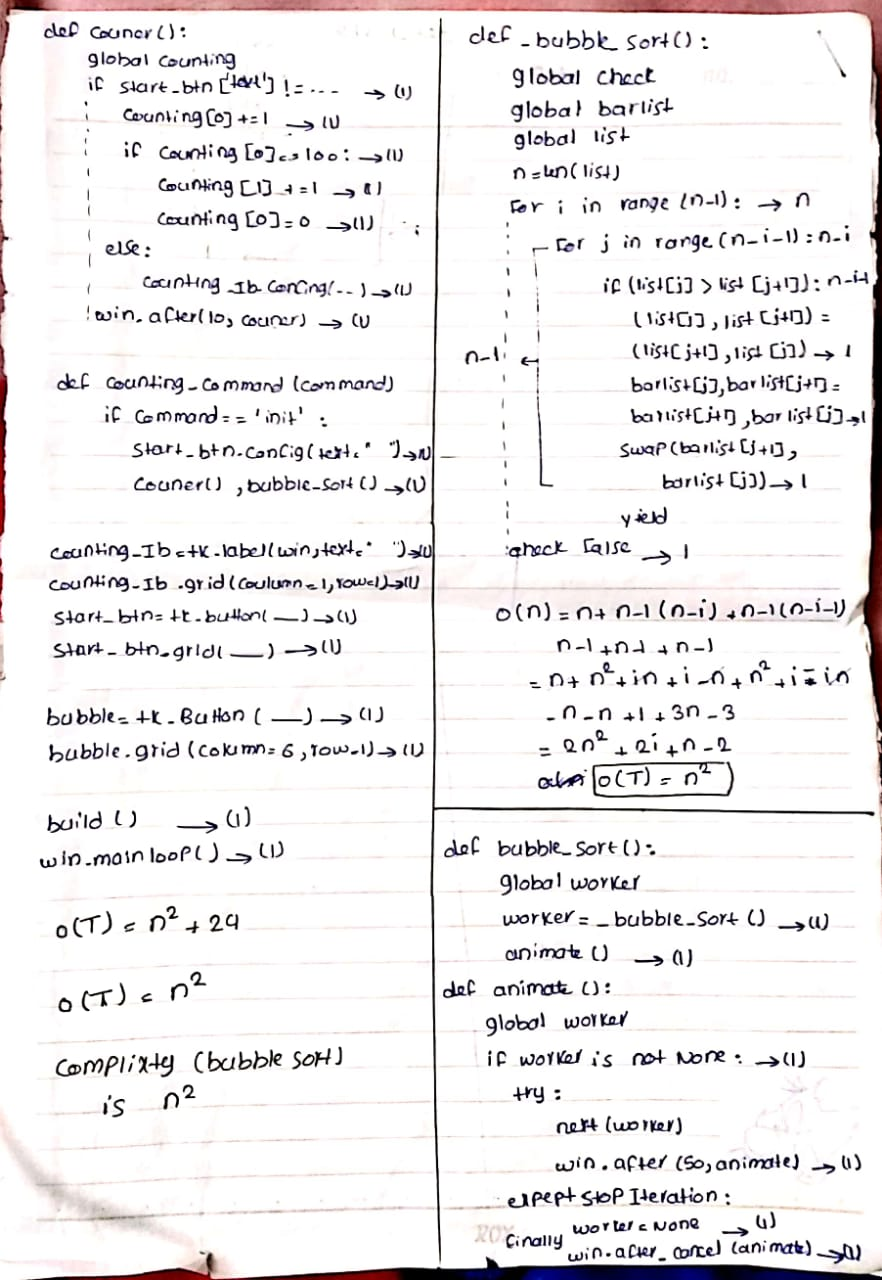 def couner():
global counting
if start_btn ['text'] != --- → (1)
counting [0] += 1 → (1)
if counting [0] => 100 : → (1)
counting [1] += 1 → (1)
counting [0] = 0 → (1)
else:
counting_lb.config(--) → (1)
win.after(10, couner) → (1)
def counting_command (command)
if command == 'init' :
start_btn.config(text=" ") → (1)
couner() , bubble_sort () → (1)
counting_lb = tk.label(win, text=" ") → (1)
counting_lb .grid(coulumn=1, row=1) → (1)
start_btn = tk.button( — ) → (1)
start_btn_grid( — ) → (1)
bubble = tk.Button ( — ) → (1)
bubble.grid (column= 6, row=1) → (1)
build () → (1)
win.mainloop() → (1)
o(T) = n² + 24
o(T) = n²
complixty (bubble sort)
is n²
def _bubble sort():
global check
global barlist
global list
n=len(list)
for i in range (n-1): → n
for j in range (n-i-1) : n-i
if (list[j] > list [j+1]): n-i-1
(list[j], list [j+1]) =
n-1 ← (list[j+1], list [j]) → 1
barlist[j], barlist[j+1] =
barlist[j+1], bar list[j] → 1
swap (barlist [j+1],
barlist [j]) → 1
yield
check False → 1
o(n) = n + n-1 (n-i) + n-1 (n-i-1)
n-1 + n-1 + n-1
= n + n² + in + i - n + n² + i = in
- n - n + 1 + 3n - 3
= 2n² + 2i + n - 2
o(T) = n²
def bubble_sort():
global worker
worker = _bubble_sort () → (1)
animate () → (1)
def animate ():
global worker
if worker is not None : → (1)
try :
next (worker)
win.after (50, animate) → (1)
expept stop Iteration :
worker = None → (1)
finally win.after_cancel (animate) → (1)